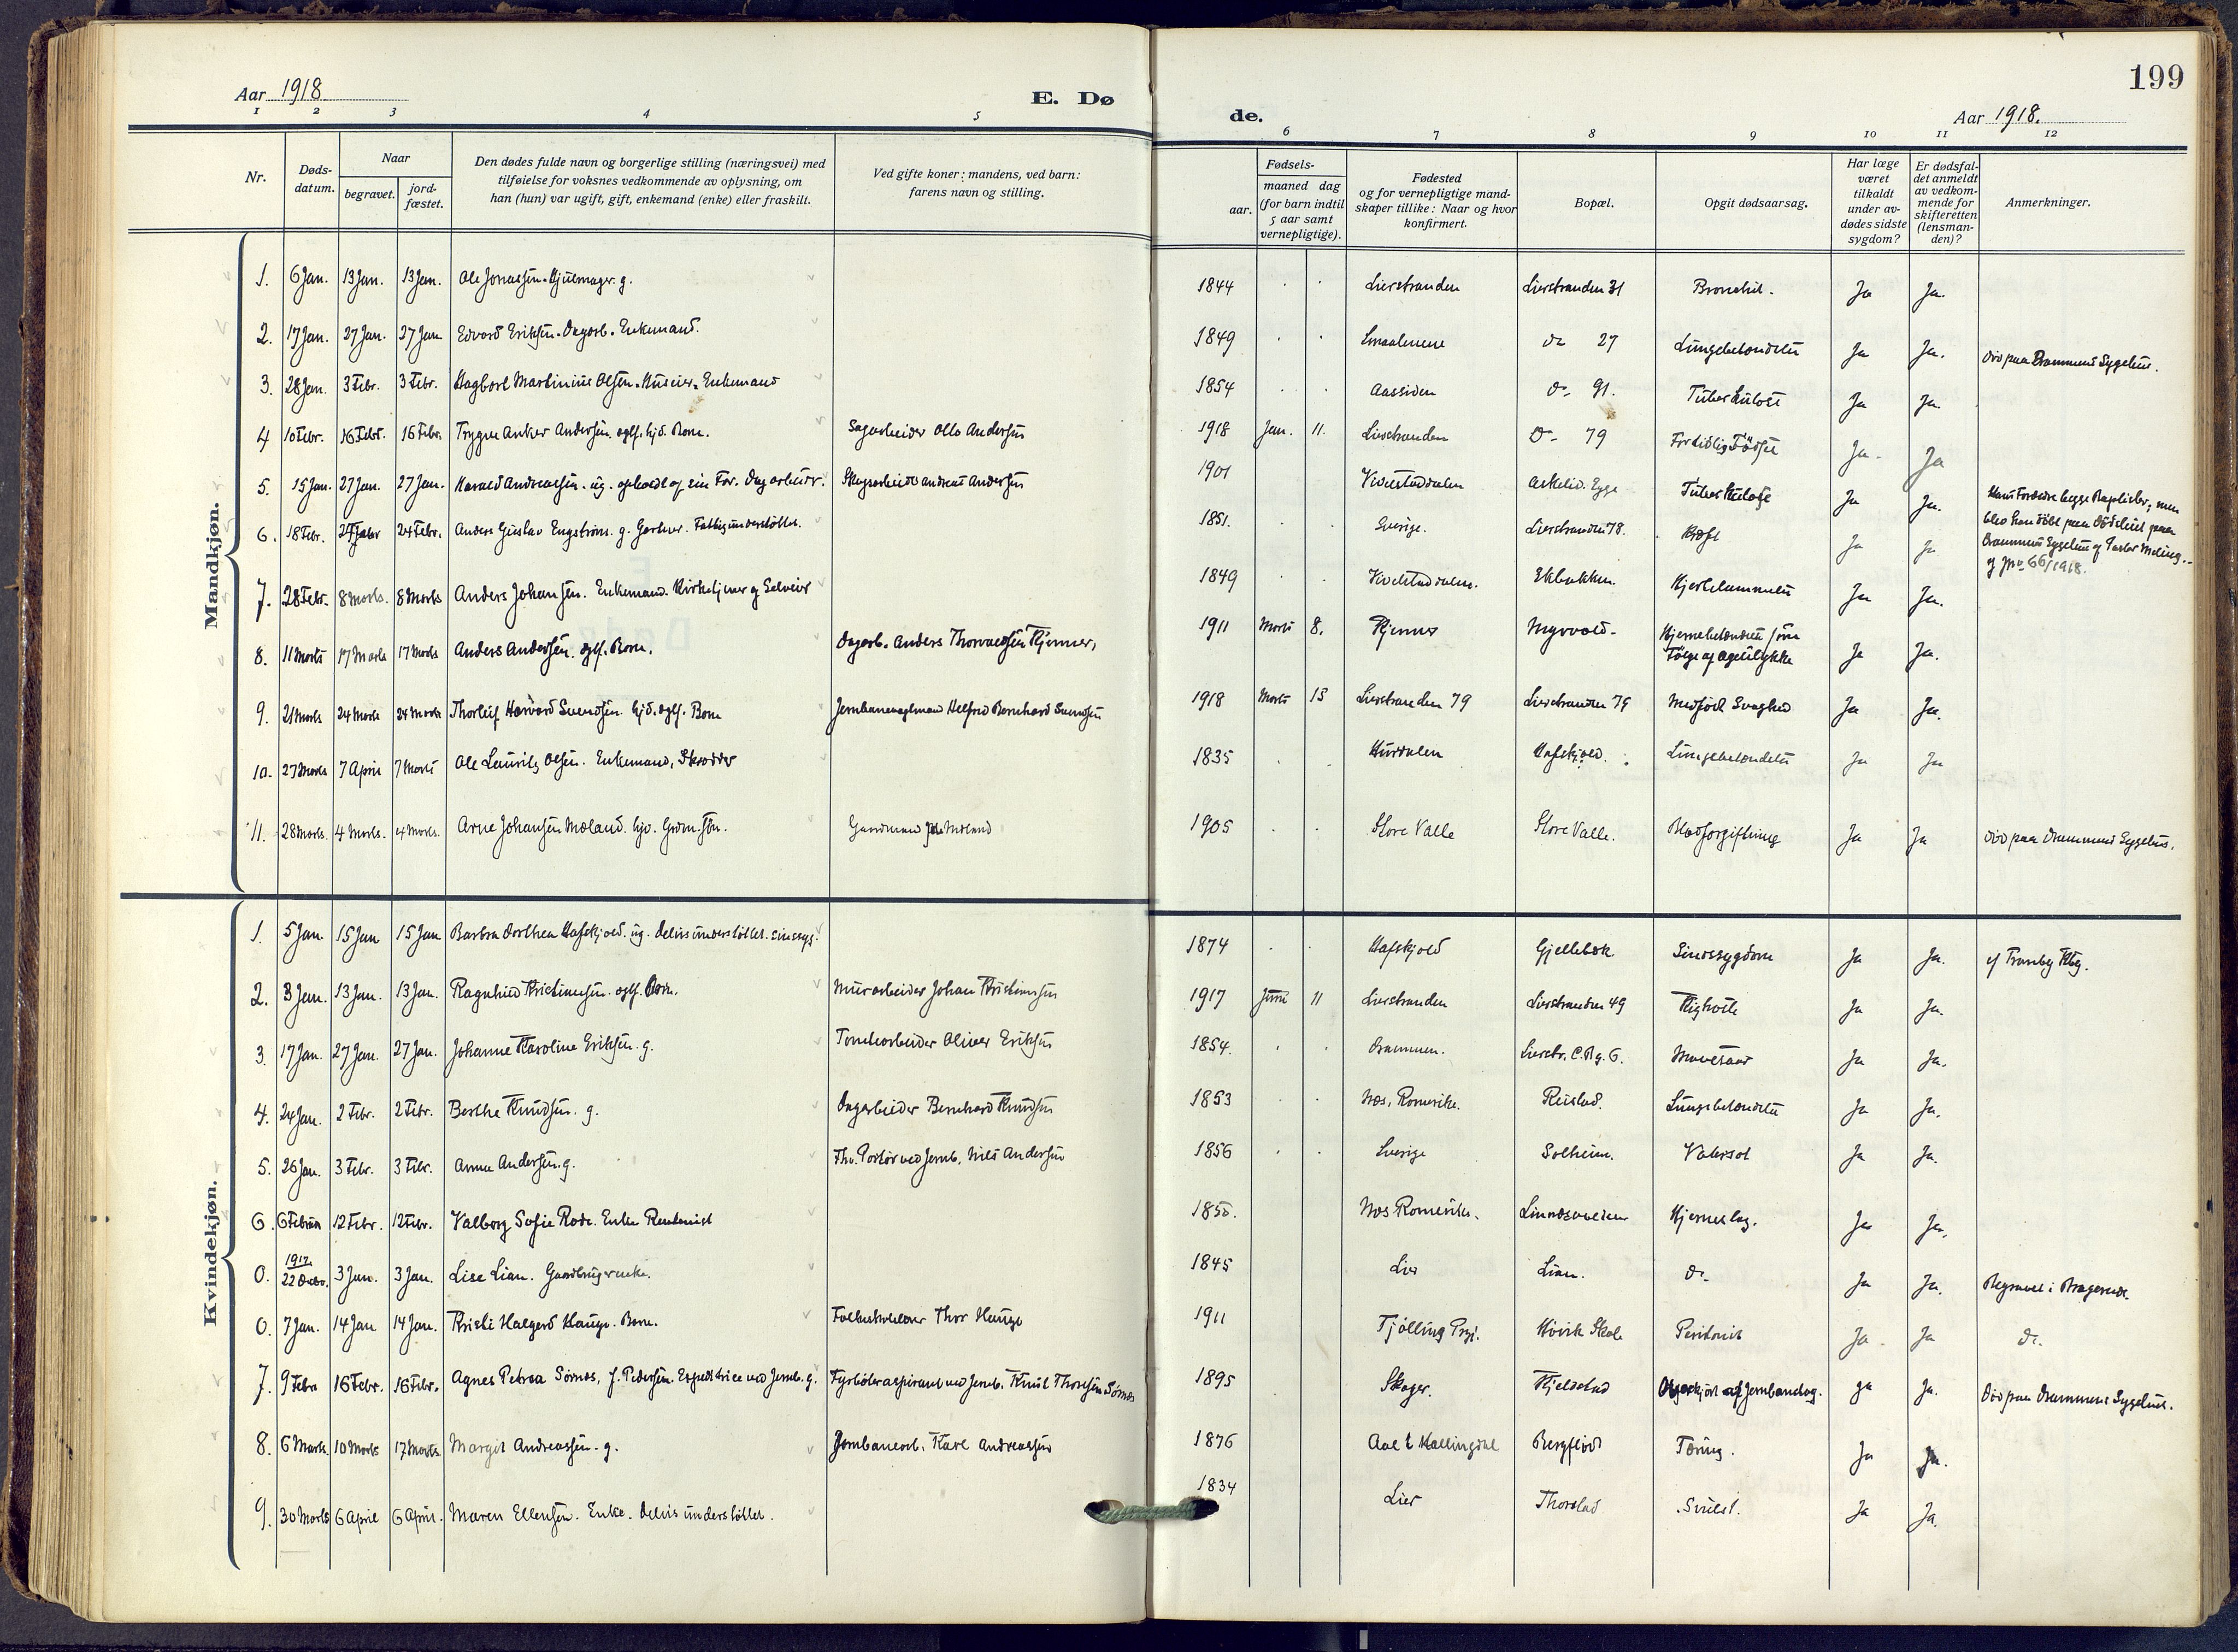 199
Aar 1918
E. Dø
de.
Aar 1918.
1 2 3 4 5 6 7 8 9 10 11 12
Nr.
Døds-
datum.
Naar
begravet.
jord-
fæstet.
Den dødes fulde navn og borgerlige stilling (næringsvei) med
tilføielse for voksnes vedkommende av oplysning, om
han (hun) var ugift, gift, enkemand (enke) eller fraskilt.
Ved gifte koner: mandens, ved barn:
farens navn og stilling.
Fødsels-
aar.
maaned dag
(for barn indtil
5 aar samt
vernepligtige).
Fødested
og for vernepligtige mand-
skaper tillike: Naar og hvor
konfirmert.
Bopæl.
Opgit dødsaarsag.
Har læge
været
tilkaldt
under av-
dødes sidste
sygdom?
Er dødsfal-
det anmeldt
av vedkom-
mende for
skifteretten
(lensman-
den)?
Anmerkninger.
Mandkjøn.
1. 6 Jan. 13 Jan. 13 Jan. Ole Jonassen. Hjulmager. g. 1844 Lierstranden Lierstranden 31 Bronchit. Ja Ja.
2. 17 Jan. 27 Jan. 27 Jan Edvard Eriksen. Dagarb. Enkemand. 1849 Smaalenene do 27 Lungebetændelse Ja Ja. Død paa Drammens Sygehus.
3. 28 Jan. 3 Febr. 3 Febr. Hagbart Martinius Olsen. Huseier. Enkemand 1854 Aassiden do 91. Tuberkulose Ja Ja.
4 10 Febr. 16 Febr. 16 Febr. Trygve Anker Andersen. Barn. Sagarbeider Andersen 1918 Jan. 11. Lierstranden do 79 Fortidlig Fødsel Ja. Ja
5. 15 Jan. 27 Jan. 27 Jan. Harald Andreassen. ug. af sin Far. Dagarbeider. Skogsarbeider Andreas Andersen 1901 Egge Tuberkulose Ja Ja. Hans Forældre begge Baptister, men
blev han døbt paa Dødsleiet paa
Drammens Sygehus af Pastor
66/1918.
6. 18 Febr. 24 Febr 24 Febr. Anders Gustav Engstrøm. g. Garver. Fattigunderstøttet. 1851. Sverige. Lierstranden 78. Kræft Ja Ja
7. 28 Febr. 8 Marts. 8 Marts Anders Johansen. Enkemand. Kirketjener og Selveier 1849 Ekbakken. Hjertelammelse Ja Ja.
8. 11 Marts 17 Marts 17 Marts Anders Andersen. Barn. Dagarb. Anders Thorvaldsen Kjenner, 1911 Marts 8. Kjenner Myrvold. Hjernebetændelse som
Følge af Ja Ja.
9. 21 Marts 24 Marts 24 Marts Thorleif Harvard Svendsen. Barn Jernbanevogtmand Bernhard Svendsen 1918 Marts 15 Lierstranden 79 Lierstranden 79 Medfødt Svaghed Ja Ja.
10. 27 Marts 7 April 7 Marts Ole Lauritz Olsen. Enkemand, Skrædder 1835 Hurdalen Hafskjold. Lungebetændelse Ja Ja
11. 28 Marts. 4 Marts. 4 Marts. Arne Johansen Møland. Gaardmand Møland 1905 Store Valle Store Valle. Blodforgiftning Ja Ja Død paa Drammens Sygehus.
Kvindekjøn.
1. 5 Jan 15 Jan 15 Jan Barbra Dorthea Hafskjold. ug. delvis understøttet. sinssyg. 1874 Hafskjold Gjellebæk Sindssygdom Ja Ja. Tranby Kbg.
2. 3 Jan. 13 Jan. 13 Jan. Ragnhild Kristiansen. Barn. Murarbeider Johan Kristiansen 1917 Juni 11 Lierstranden Lierstranden 49 Kighoste Ja Ja.
3 17 Jan. 27 Jan. 27 Jan. Johanne Karoline Eriksen. g. Tomtearbeider Oliver Eriksen 1854. Drammen. Lierstr. Mavesaar Ja Ja.
4. 24 Jan. 2 Febr. 2 Febr. Berthe Knudsen. g. Dagarbeider Bernhard Knudsen 1853 Næs, Romerike. Reistad. Lungebetændelse Ja Ja.
5. 26 Jan. 3 Febr. 3 Febr. Anna Andersen. g. Fhv. Portør ved Jernb. Nils Andersen 1856 Sverige Solheim. Vatersot Ja Ja.
6. 6 Februar 12 Febr. 12 Febr. Valborg Sofie Rode. Enke Rentenist 1850. Næs Romerike. Hjerneslag. Ja Ja.
0. 1917. 22 Decbr. 3 Jan. 3 Jan. Lise Lian. Gaardbrugerenke. 1845 Lier Lian. do. Ja Ja. Begravet i Bragernes.
0. 7 Jan. 14 Jan 14 Jan. Kristi Halgerd Hauge. Barn. Folkeskolelærer Thor Hauge 1911 Tjølling Prgj. Høvik Skole Peritonit Ja. Ja do.
7. 9 Febr 16 Febr. 16 Febr. Agnes Petrea Sørnes, f. Pedersen. Expeditrice ved Jernb. g. Fyrbøteraspirant ved Jernb. Knut Thoresen Sørnes 1895 Skoger. Kjelstad Overkjørt af Jernbanetog. Ja Ja. Død paa Drammens Sygehus.
8. 6 Marts. 10 Marts 17 Marts Margit Andreassen. g. Jernbanearb. Karl Andreassen 1876 Aal i Hallingdal Bergflødt Tæring. Ja Ja.
9. 30 Marts 6 April 6 April. Maren Ellensen. Enke. Delvis understøttet. 1834 Lier Thorstad Svulst. Ja Ja.